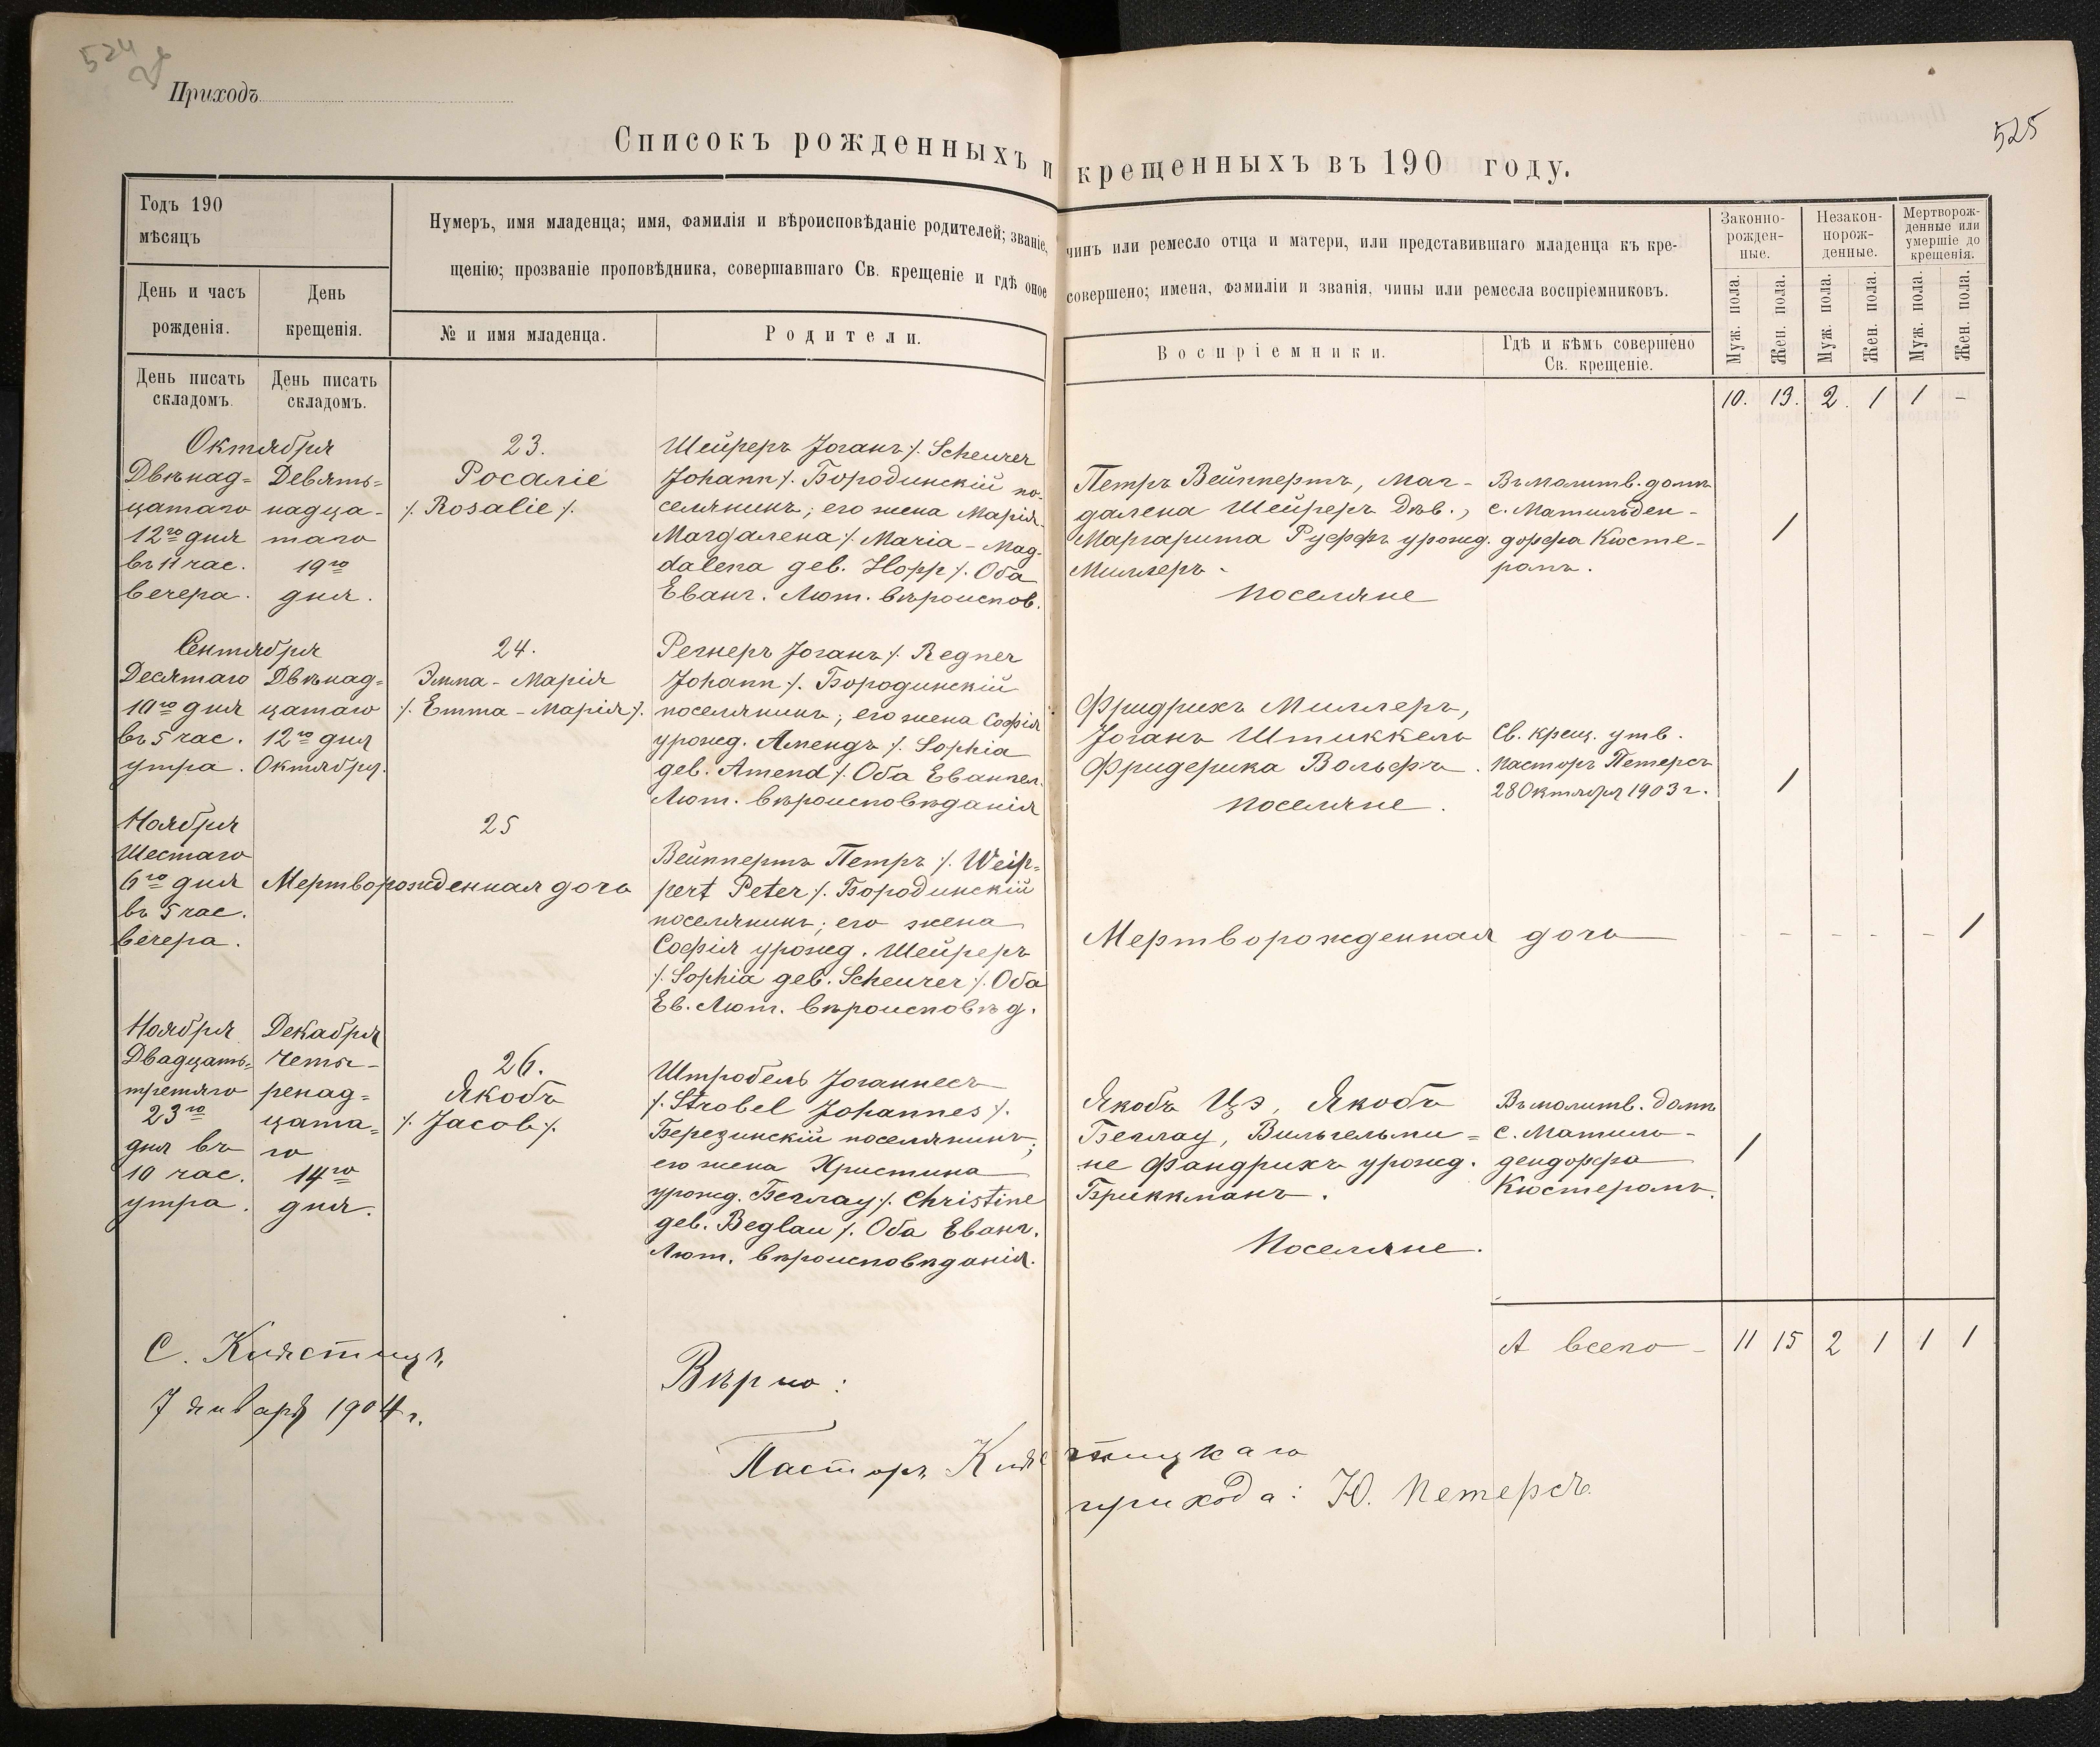 524
Приходъ
525
Списокъ рожденныхъ и крещенныхъ въ 190 году.
Годъ 190
мѣсяцъ
Нумеръ, имя младенца; имя, фамилія и вѣроисповѣданіе родителей; званіе, чинъ или ремесло отца и матери, или представившаго младенца къ кре-
щенію; прозваніе проповѣдника, совершавшаго Св. крещеніе и гдѣ оное совершено; имена, фамиліи и званія, чины или ремесла воспріемниковъ.
Законно-
рожден-
ные.
Незакон-
норож-
денные.
Мертворож-
денные или
умершіе до
крещенія.
День и часъ
рожденія.
День
крещенія.
№ и имя младенца.
Родители.
Воспріемники.
Гдѣ и кѣмъ совершено
Св. крещеніе.
Муж. пола.
Жен. пола.
Муж. пола.
Жен. пола.
Муж. пола.
Жен. пола.
День писать
складомъ.
День писать
складомъ.
10. 13. 2. 1 1 -
Октября
Двѣнад=
цатаго
12го дня
въ 11 час.
вечера.
Девять=
надца-
таго
19го
дня.
23.
Росаліе
/. Rosalie /.
Шейреръ Іоганъ /. Scheurer
Johann /. Бородинскій по-
селянинъ; его жена Марія-
Магдалена /. Maria-Mag-
dalena geb. Hopp /. Оба
Еванг. Лют. вѣроиспов.
Петръ Вейппертъ, Маг-
далена Шейреръ дѣв.,
Маргарита Руффъ урожд.
Миллеръ.
поселяне
Въ молитв. домѣ
с. Матильден-
дорфа Кюсте-
ромъ.
1
Сентября
Десятаго
10го дня
въ 5 час.
утра.
Двѣнад=
цатаго
12го дня
Октября.
24.
Эмма-Марія
/. Emma-Марія /.
Регнеръ Іоганъ /. Regner
Johann /. Бородинскій
поселянинъ; его жена Софія
урожд. Амендъ /. Sophia
geb. Amend /. Оба Евангел.
Лют. вѣроисповѣданія
Фридрихъ Миллеръ,
Іоганъ Штиккель
Фридерика Вольфъ.
поселяне.
Св. крещ. утв.
пасторъ Петерсъ
28 Октября 1903 г.
1
Ноября
Шестаго
6го дня
въ 5 час.
вечера.
25
Мертворожденная дочь
Вейппертъ Петръ /. Weip=
pert Peter /. Бородинскій
поселянинъ; его жена
Софія урожд. Шейреръ
/. Sophia geb. Scheurer /. Оба
Ев. Лют. вѣроисповѣд.
Мертворожденная дочь
- - - - - 1
Ноября
Двадцать=
третяго
23го
дня въ
10 час.
утра.
Декабря
Четы-
ренад=
цата=
го
14го
дня.
26.
Якобъ
/. Jacob /.
Штробель Іоганнесъ
/. Strobel Johannes /.
Березинскій поселянинъ;
его жена Христина
урожд. Беглау /. Christine
geb. Beglau /. Оба Еванг.
Лют. вѣроисповѣданія.
Якобъ Цэ, Якобъ
Беглау, Вильгельми=
не Фандрихъ урожд.
Бриккманъ.
Поселяне.
Въ молитв. домѣ
с. Матиль-
дендорфа
Кюстеромъ.
1
А всего - 11 15 2 1 1 1
С. Княстицъ,
7 января 1904 г.
Вѣрно:
Пасторъ Княстицкаго
прихода: Ю. Петерсъ.